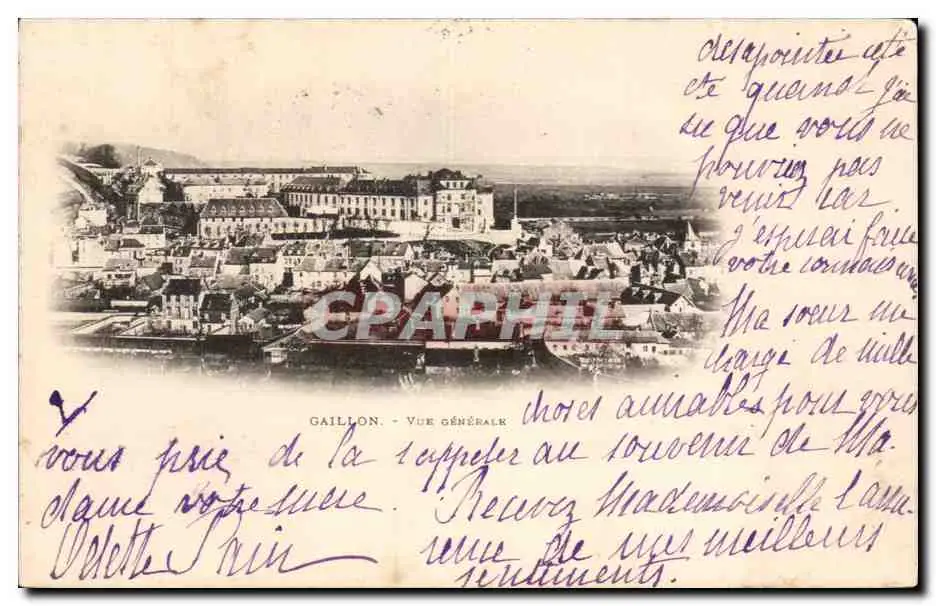 desapointée été
été quand j'ai
su que vous ne
pouviez pas
venir car
j'esperai faire
votre connaissance
Ma sœur me
charge de mille
choses aimables pour vous
GAILLON. - VUE GÉNÉRALE
CPARPHIL
vous prie de la rappeler au souvenir de Ma-
dame votre mère. Recevez Mademoiselle l'assu-
rence de mes meilleurs
sentiments
Odette